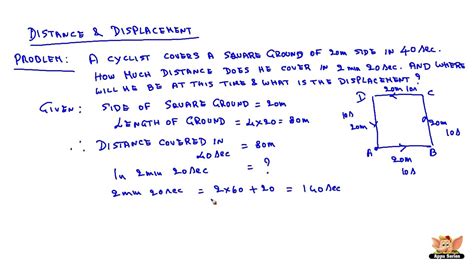 DISTANCE & DISPLACEMENT
PROBLEM: A CYCLIST COVERS A SQUARE GROUND OF 20m SIDE IN 40 SEC.
HOW MUCH DISTANCE DOES HE COVER IN 2 MIN 20SEC. AND WHERE
WILL HE BE AT THIS TIME & WHAT IS THE DISPLACEMENT?
GIVEN: SIDE OF SQUARE GROUND = 20m
LENGTH OF GROUND = 4x20 = 80m
∴ DISTANCE COVERED IN = 80m
40 SEC
IN 2 MIN 20 SEC = ?
2 MIN 20 SEC = 2x60 + 20 = 140 SEC
D C
20m 10s
10s
20m
10s
20m
A B
20m
10s
Appu Series